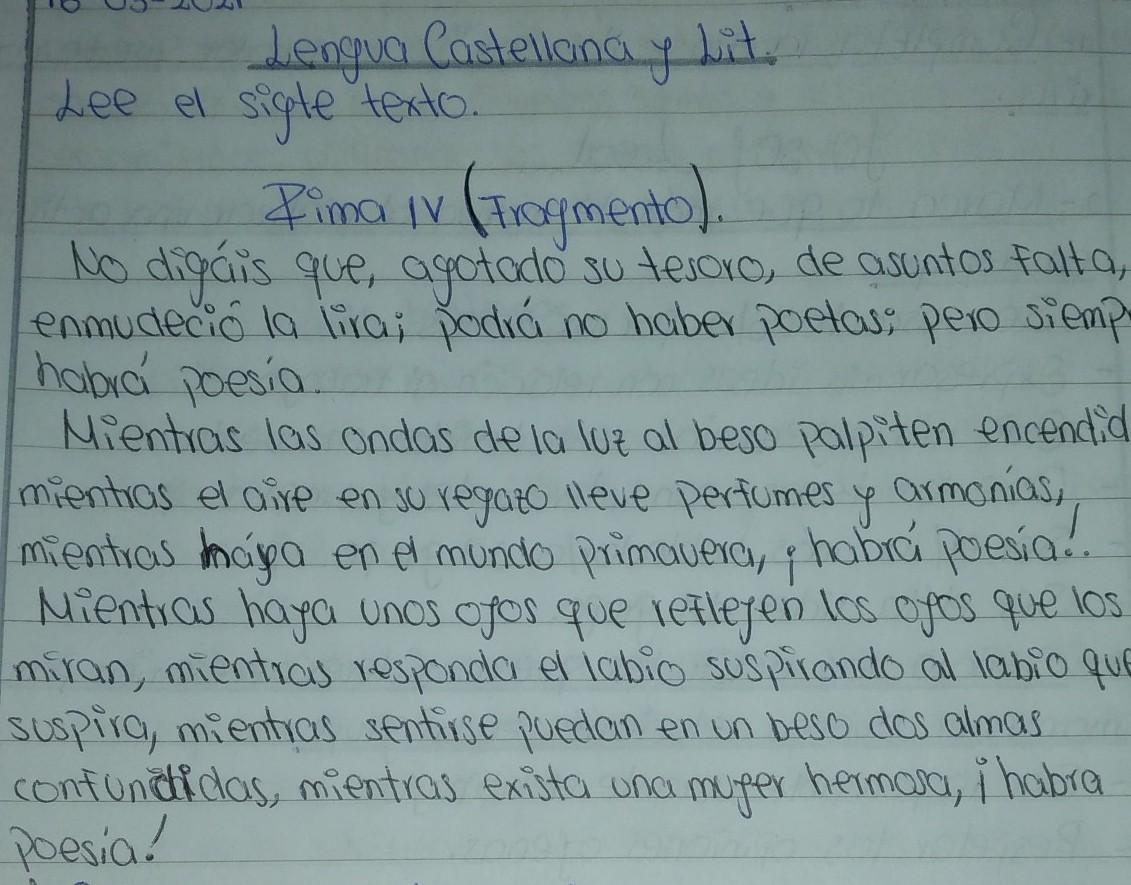 Lengua Castellana y Lit.
Lee el sigte texto.
Rima IV (Fragmento).
No digáis que, agotado su tesoro, de asuntos falta,
enmudeció la lira; podrá no haber poetas; pero siemp
habrá poesía.
Mientras las ondas de la luz al beso palpiten encendid
mientras el aire en su regazo lleve perfumes y armonías,
mientras háya en el mundo primavera, ¡habrá poesía!.
Mientras haya unos ojos que reflejen los ojos que los
miran, mientras responda el labio suspirando al labio que
suspira, mientras sentirse puedan en un beso dos almas
confundidas, mientras exista una mujer hermosa, ¡habra
poesía!